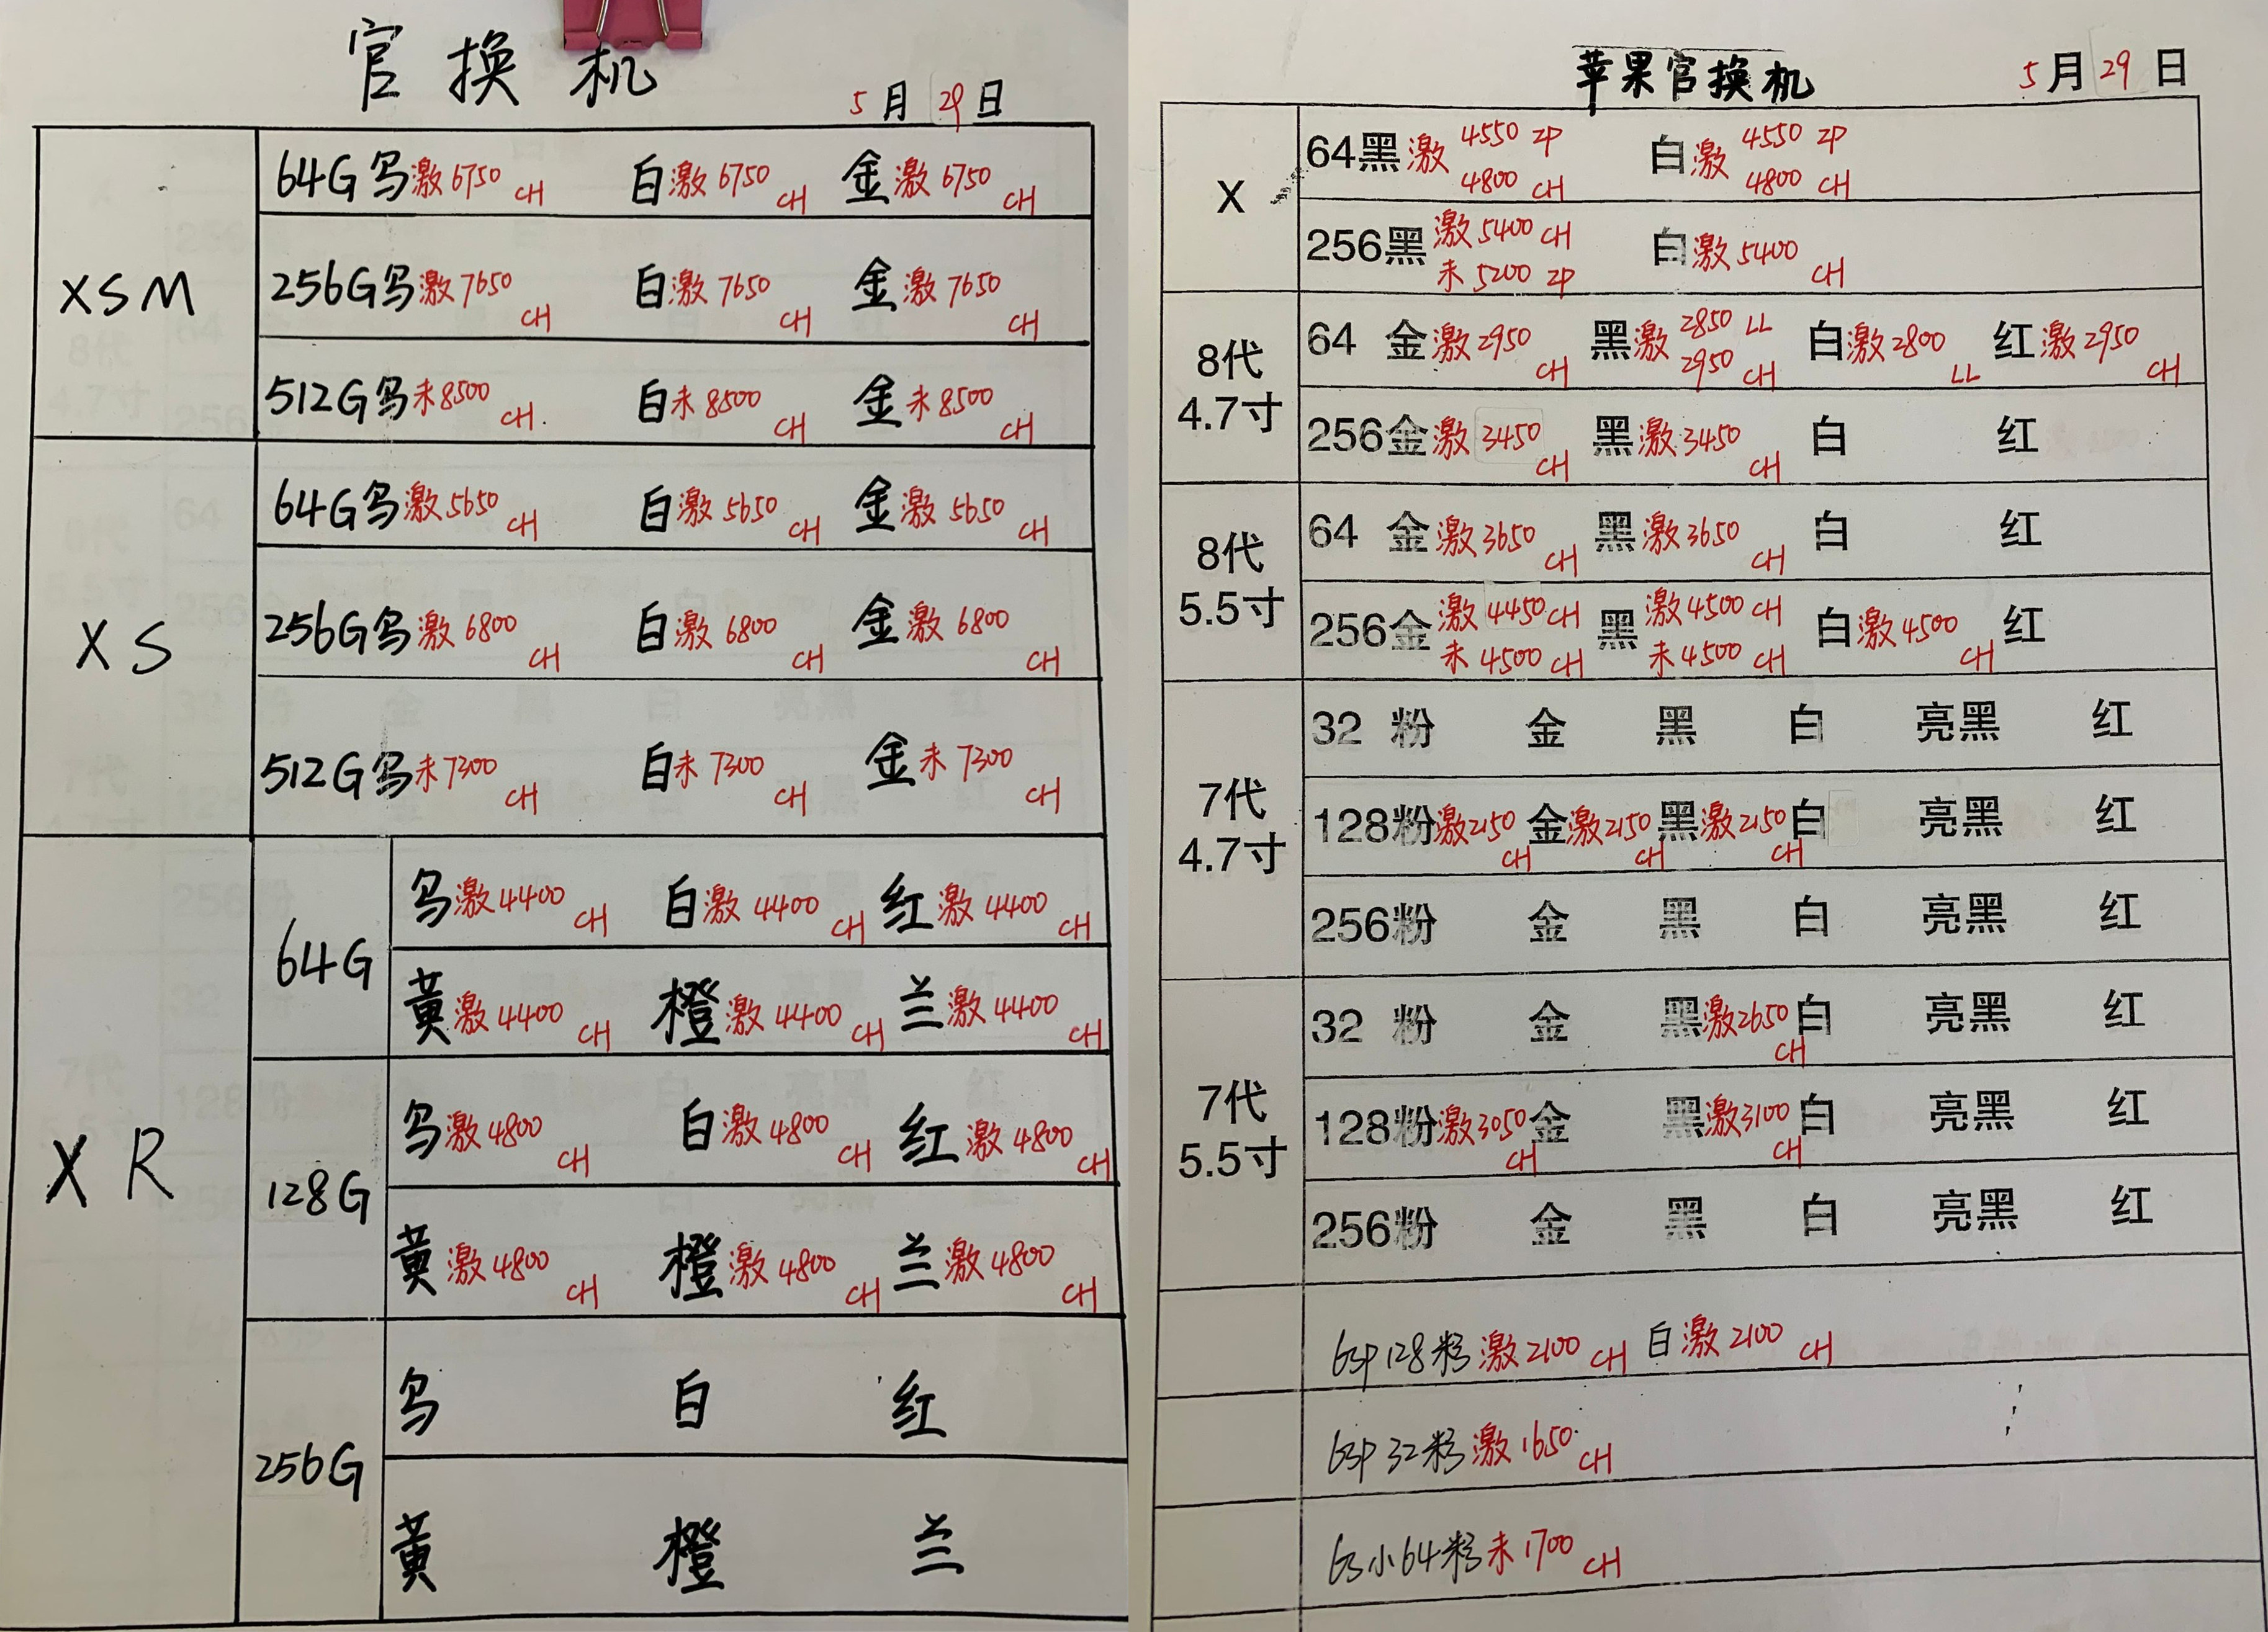 官换机
5月29日
XSM
64G乌激6750 CH 白激6750 CH 金激6750 CH
256G乌激7650 CH 白激7650 CH 金激7650 CH
512G乌未8500 CH. 白未8500 CH 金未8500 CH
XS
64G乌激5650 CH 白激5650 CH 金激5650 CH
256G乌激6800 CH 白激6800 CH 金激6800 CH
512G乌未7300 CH 白未7300 CH 金未7300 CH
XR
64G
乌激4400 CH 白激4400 CH 红激4400 CH
黄激4400 CH 橙激4400 CH 兰激4400 CH
128G
乌激4800 CH 白激4800 CH 红激4800 CH
黄激4800 CH 橙激4800 CH 兰激4800 CH
256G
乌 白 红
黄 橙 兰
苹果官换机
5月29日
X
64黑激 4550 ZP 白激 4550 ZP
4800 CH 4800 CH
256黑 激5400 CH 白激5400 CH
未5200 ZP
8代
4.7寸
64 金激2950 CH 黑激 2850 LL 白激2800 LL 红激2950 CH
2950 CH
256金激3450 CH 黑激3450 CH 白 红
8代
5.5寸
64 金激3650 CH 黑激3650 CH 白 红
256金 激4450 CH 黑 激4500 CH 白激4500 CH 红
未4500 CH 未4500 CH
7代
4.7寸
32 粉 金 黑 白 亮黑 红
128粉激2150 CH 金激2150 CH 黑激2150 CH 白 亮黑 红
256粉 金 黑 白 亮黑 红
7代
5.5寸
32 粉 金 黑激2650 CH 白 亮黑 红
128粉激3050 CH 金 黑激3100 CH 白 亮黑 红
256粉 金 黑 白 亮黑 红
6sp 128粉激2100 CH 白激2100 CH
6sp 32粉激1650 CH
6s小64粉未1700 CH